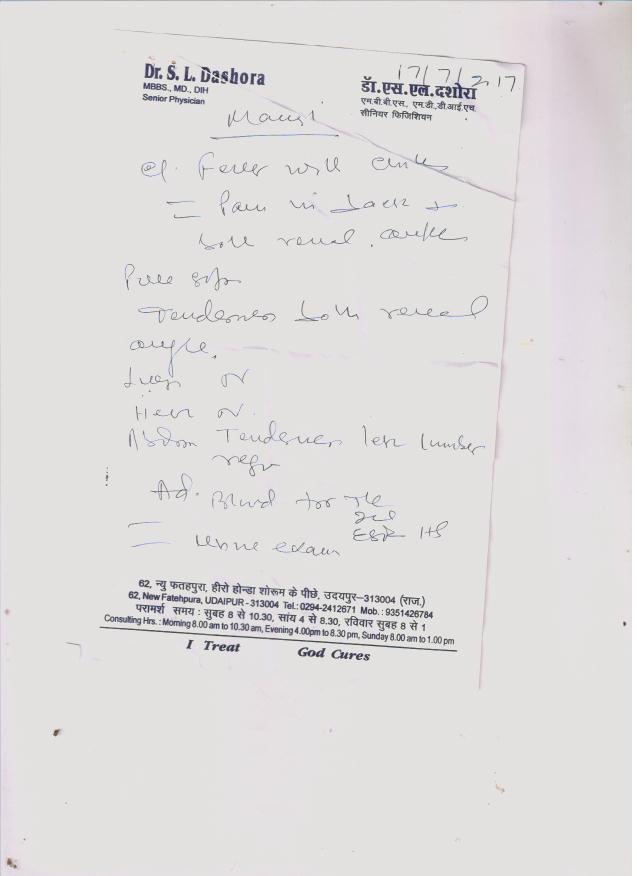 Dr. S. L. Dashora
MBBS., MD., DIH
Senior Physician
17/7/2017
डॉ.एस.एल.दशोरा
एम.बी.बी.एस., एम.डी.,डी.आई.एच.
सीनियर फिजिशियन
c/. Fever with
= Pain in back &
both renal. angles
Tenderness both renal
angle.
N
Heart N.
Abdom Tenderness left lumber
Ad. Blood for TLC
DLC
ESR Hb
= Urine exam
62, न्यु फतहपुरा, हीरो होन्डा शोरूम के पीछे, उदयपुर–313004 (राज.)
62, New Fatehpura, UDAIPUR - 313004 Tel.: 0294-2412671 Mob. : 9351426784
परामर्श समय : सुबह 8 से 10.30, सांय 4 से 8.30, रविवार सुबह 8 से 1
Consulting Hrs. : Morning 8.00 am to 10.30 am, Evening 4.00pm to 8.30 pm, Sunday 8.00 am to 1.00 pm
I Treat God Cures